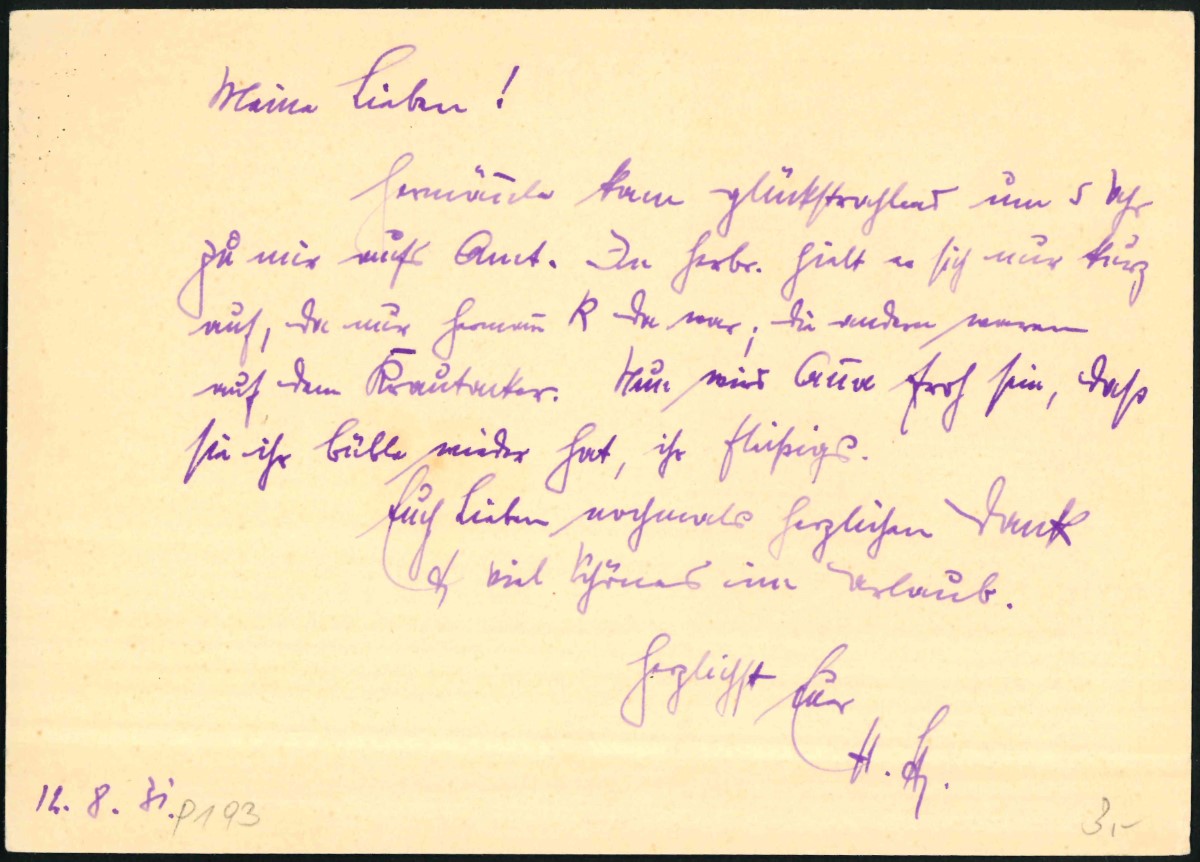 Meine Lieben!
kam glückstrahlend um 5 Uhr
zu mir aufs Amt. In Herbr. hielt er sich nur kurz
auf, da nur Hermann R da war; die andern waren
auf dem Krautacker. Nun wird Anna froh sein, daß
sie ihr Büble wieder hat, ihr fleißigs.
Euch Lieben nochmals herzlichen Dank
& viel Schönes im Urlaub.
Herzlichst Euer
H.
12. 8. 31. P193
3,-